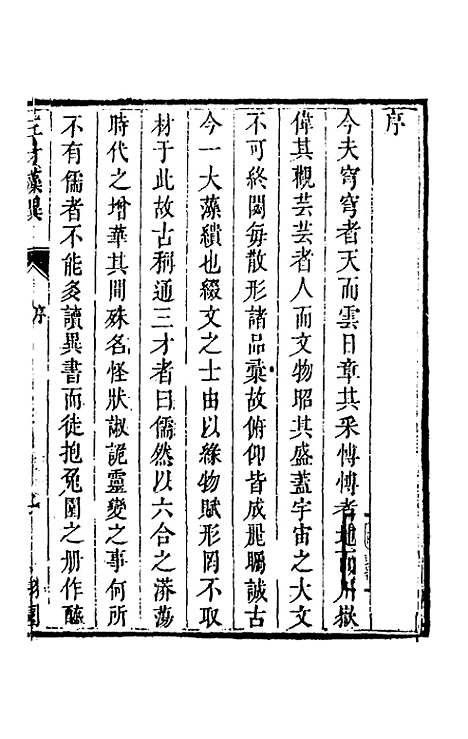 序
今夫穹穹者天而雲日章其采慱慱者地而川嶽
偉其觀芸芸者人而文物昭其盛蓋宇宙之大文
不可終閟每散形諸品彚故俯仰皆成飛矚誠古
今一大藻繢也綴文之士由以緣物賦形罔不取
材于此故古稱通三才者曰儒然以六合之漭蕩
時代之增華其間殊名怪狀諔詭靈變之事何所
不有儒者不能多讀異書而徒抱兔園之册作醯
三才藻異
序